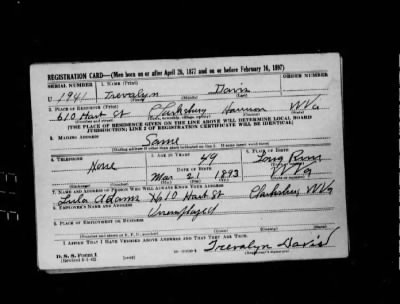 REGISTRATION CARD—(Men born on or after April 28, 1877 and on or before February 16, 1897)
SERIAL NUMBER 1. NAME (Print) ORDER NUMBER
U 1941 Trevalyn Davis
(First) (Middle) (Last)
2. PLACE OF RESIDENCE (Print)
610 Hart St Clarksburg Harrison WVa
(THE PLACE OF RESIDENCE GIVEN ON THE LINE ABOVE WILL DETERMINE LOCAL BOARD
JURISDICTION; LINE 2 OF REGISTRATION CERTIFICATE WILL BE IDENTICAL)
3. MAILING ADDRESS
Same
4. TELEPHONE 5. AGE IN YEARS 6. PLACE OF BIRTH
None 49 Long Run
DATE OF BIRTH
Mar 21 1893 WVa
7. NAME AND ADDRESS OF PERSON WHO WILL ALWAYS KNOW YOUR ADDRESS
Lula Adams 610 Hart St Clarksburg WVa
8. EMPLOYER'S NAME AND ADDRESS
Unemployed
9. PLACE OF EMPLOYMENT OR BUSINESS
I AFFIRM THAT I HAVE VERIFIED ABOVE ANSWERS AND THAT THEY ARE TRUE.
Trevalyn Davis
D. S. S. Form 1